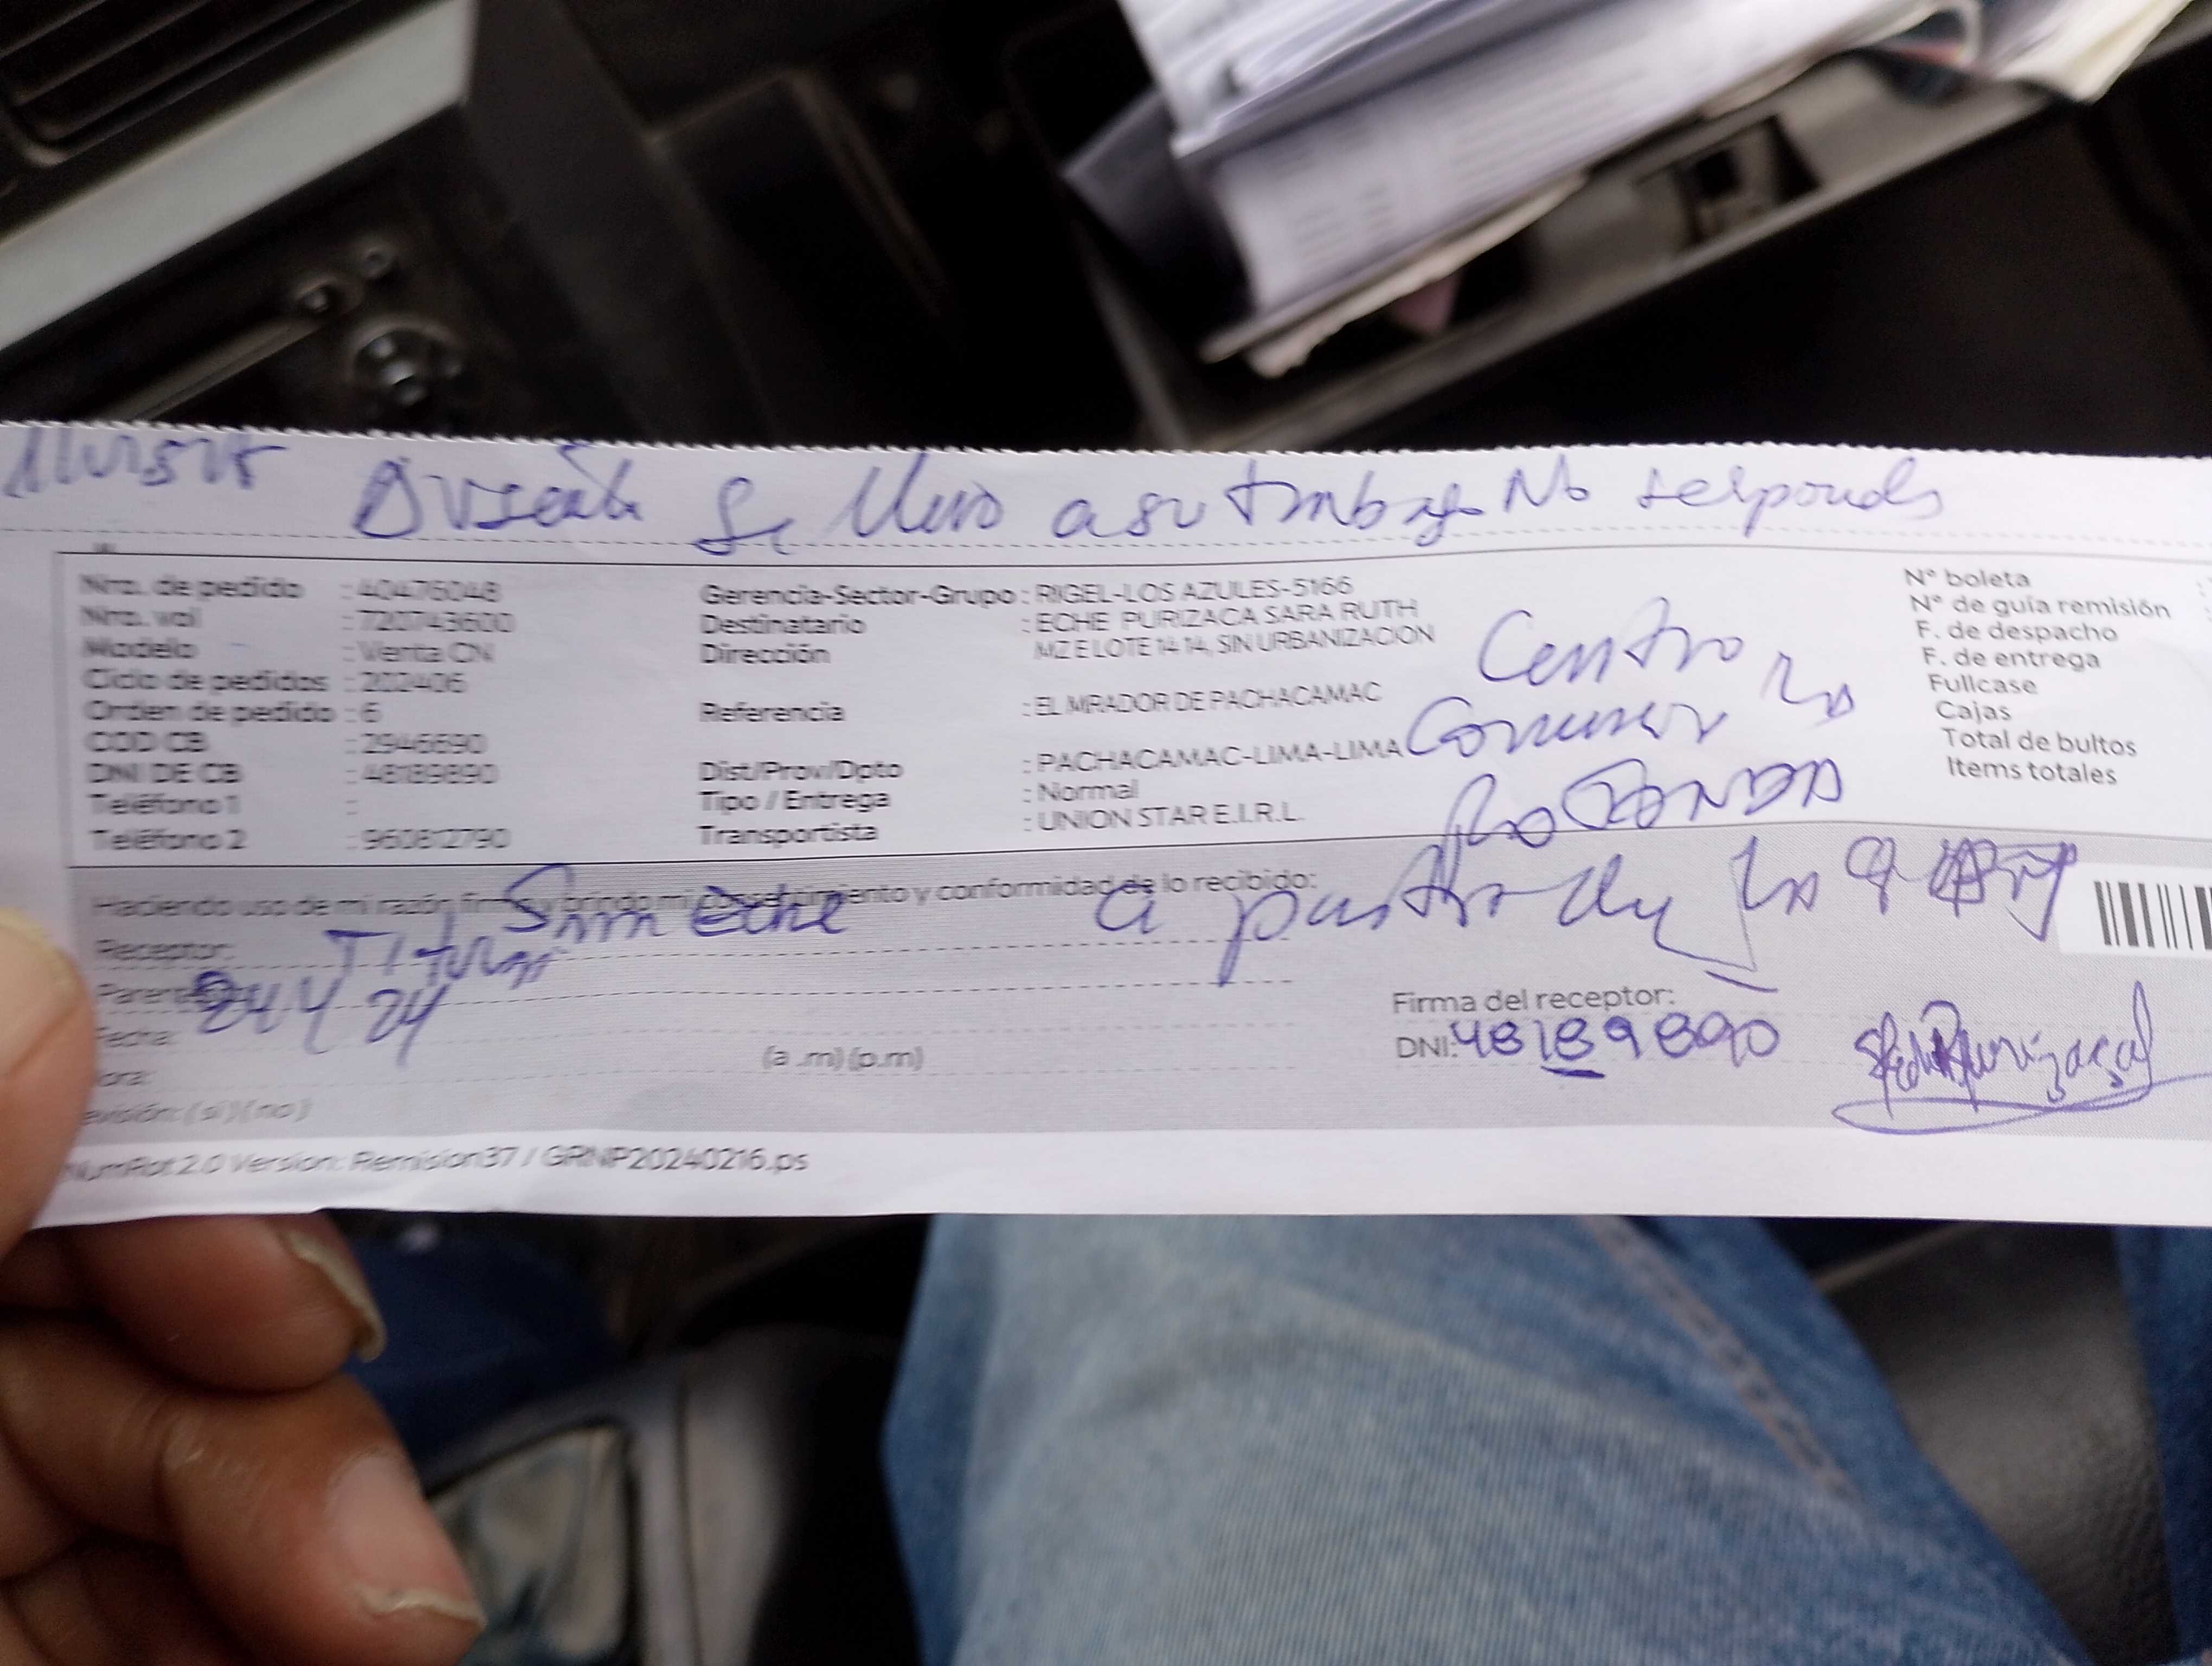 Ausente Se llevo a su trabajo No responde
Nro. de pedido : 40476048
Nro. val : 720743600
Modelo : Venta CN
Ciclo de pedidos : 202406
Orden de pedido : 6
COD CB : 2946690
DNI DE CB : 48189890
Teléfono 1 :
Teléfono 2 : 960812790
Gerencia-Sector-Grupo : RIGEL-LOS AZULES-5166
Destinatario : ECHE PURIZACA SARA RUTH
Dirección MZ E LOTE 14 14, SIN URBANIZACION
Referencia : EL MIRADOR DE PACHACAMAC
Dist/Prov/Dpto : PACHACAMAC-LIMA-LIMA
Tipo / Entrega : Normal
Transportista : UNION STAR E.I.R.L.
Centro
la
ROTONDA
N° boleta
N° de guía remisión
F. de despacho
F. de entrega
Fullcase
Cajas
Total de bultos
Items totales
Haciendo uso de mi razón firmo y brindo mi consentimiento y conformidad de lo recibido:
Receptor: Eche
Titular
Fecha: 24 4 24
(a .m) (p.m)
(si) (no)
a
la 9
Firma del receptor:
DNI: 48189890
NumRot2.0 Version: Remision37 / GRNP20240216.ps